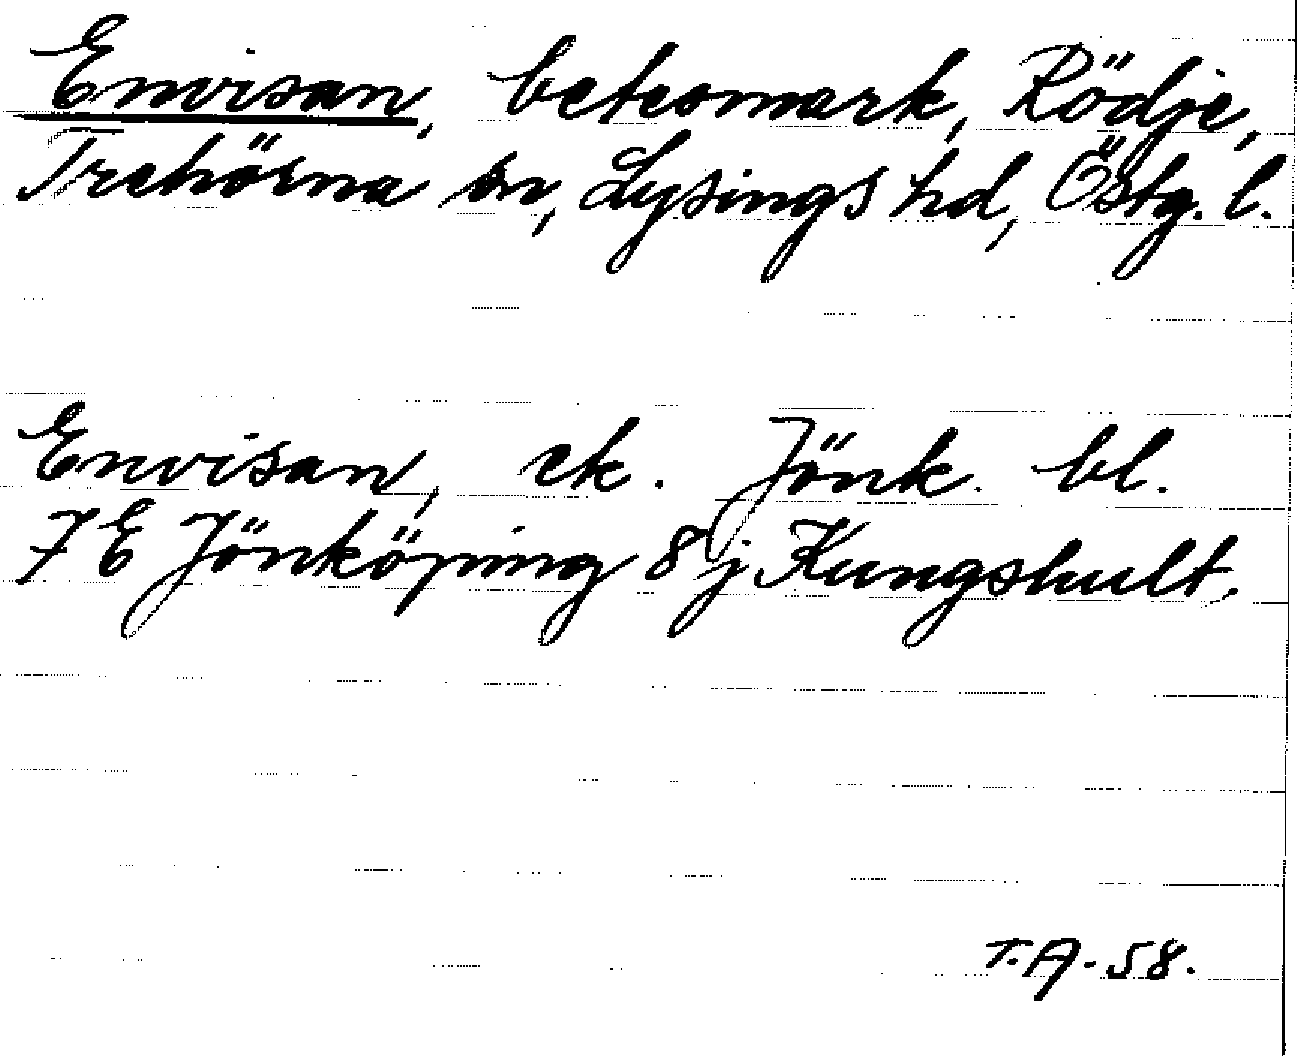 Envisan, betesmark, Rödje,
Trehörna sn, Lysings hd, Östg. l.
Envisan, ek. Jönk. bl.
7 E Jönköping 8 j Kungshult.
T.A. 58.